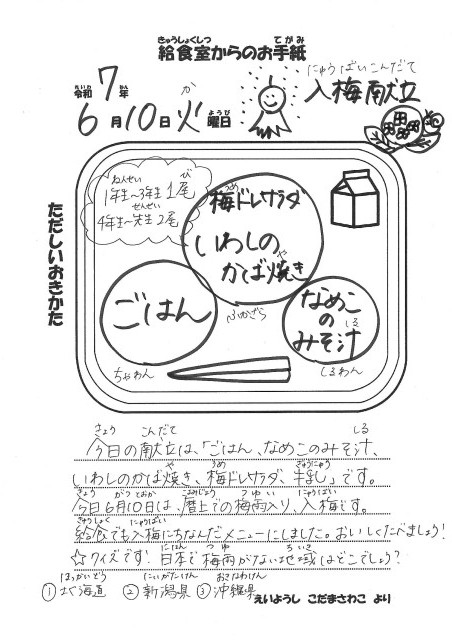 きゅうしょくしつ てがみ
給食室からのお手紙
れいわ ねん
令和 7年
か ようび
6月10日 火曜日
にゅうばいこんだて
入梅献立
ただしいおきかた
ねんせい び
1年生~3年生 1尾
せんせい
4年生~先生 2尾
うめ
梅ドレサラダ
いわしの
や
かば焼き
ふかざら
ごはん
ちゃわん
なめこ
の
しる
みそ汁
しるわん
きょう こんだて しる
今日の献立は、「ごはん、なめこのみそ汁、
や うめ ぎゅうにゅう
いわしのかば焼き、梅ドレサラダ、牛乳」です。
きょう がつ とおか こよみじょう つゆい にゅうばい
今日6月10日は、暦上での梅雨入り、入梅です。
きゅうしょく にゅうばい
給食でも入梅にちなんだメニューにしました。おいしくたべましょう!
にほん つゆ ちいき
☆クイズです! 日本で梅雨がない地域はどこでしょう?
ほっかいどう にいがたけん おきなわけん
①北海道 ②新潟県 ③沖縄県
えいようし こだまさわこ より